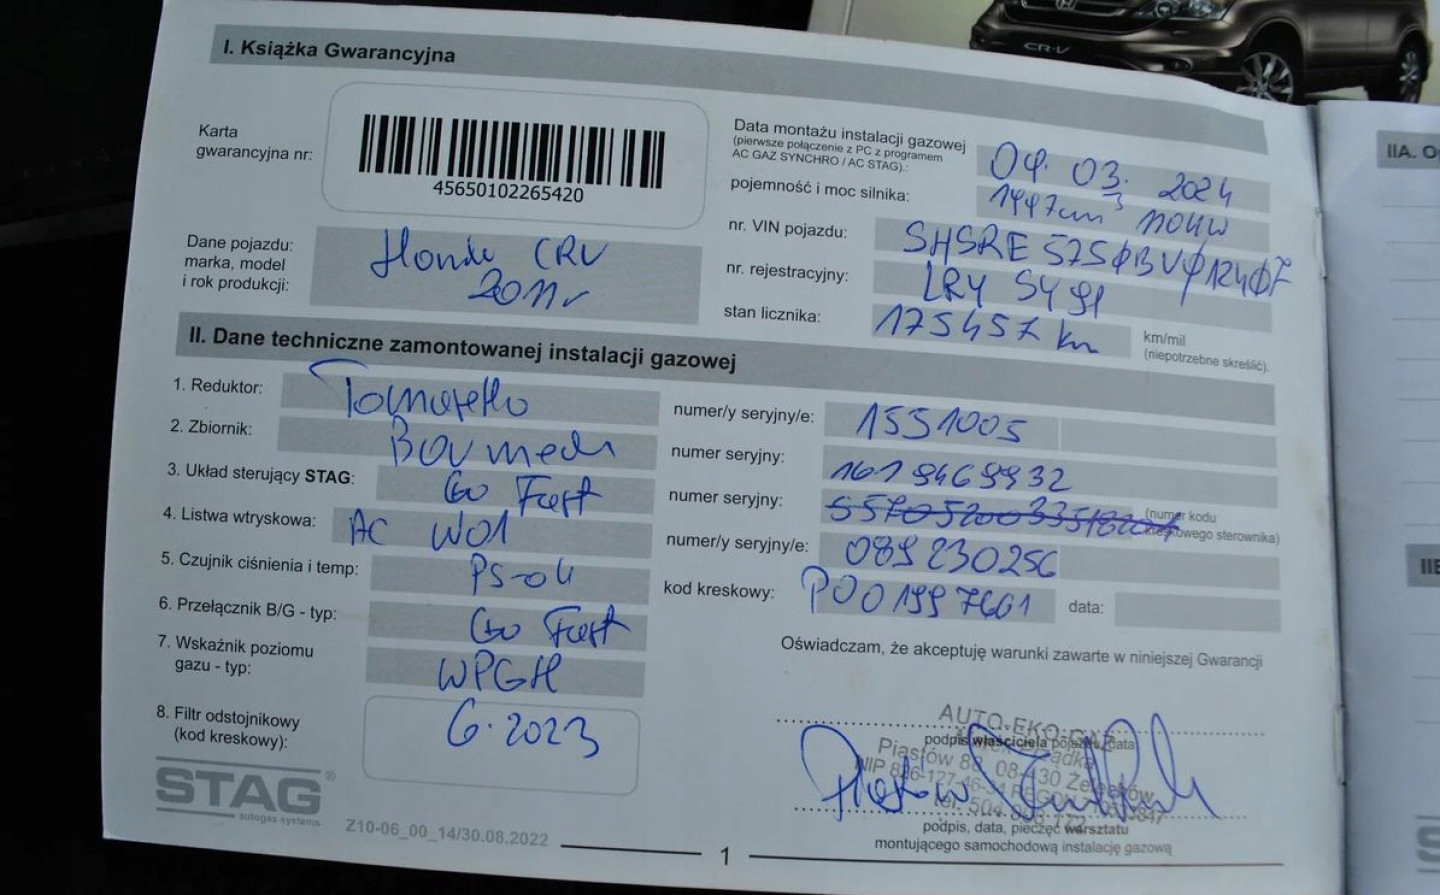 CR-V
I. Książka Gwarancyjna
Karta
gwarancyjna nr:
45650102265420
Data montażu instalacji gazowej
(pierwsze połączenie z PC z programem
AC GAZ SYNCHRO / AC STAG).:
04. 03. 2024
pojemność i moc silnika:
1997cm³ 110KW
Dane pojazdu:
marka, model
i rok produkcji:
Honda CRV
2011r
nr. VIN pojazdu:
SHSRE5750BV012407
nr. rejestracyjny:
LRY 5491
stan licznika:
175457 km
km/mil
(niepotrzebne skreślić).
II. Dane techniczne zamontowanej instalacji gazowej
1. Reduktor:
Tomasetto
numer/y seryjny/e:
1551005
2. Zbiornik:
Bormech
numer seryjny:
1619469932
3. Układ sterujący STAG:
Go Fast
numer seryjny:
(numer kodu
kreskowego sterownika)
4. Listwa wtryskowa:
AC W01
numer/y seryjny/e:
089230256
5. Czujnik ciśnienia i temp:
PS-04
kod kreskowy:
P001997601
data:
6. Przełącznik B/G - typ:
Go Fast
7. Wskaźnik poziomu
gazu - typ:
WPGH
8. Filtr odstojnikowy
(kod kreskowy):
6.2023
Oświadczam, że akceptuję warunki zawarte w niniejszej Gwarancji
AUTO-EKO-GAZ
podpis właściciela pojazdu, data
Piastów 88, 08-430 Żelechów
podpis, data, pieczęć warsztatu
montującego samochodową instalację gazową
STAG®
autogas systems
Z10-06_00_14/30.08.2022
1
IIA.